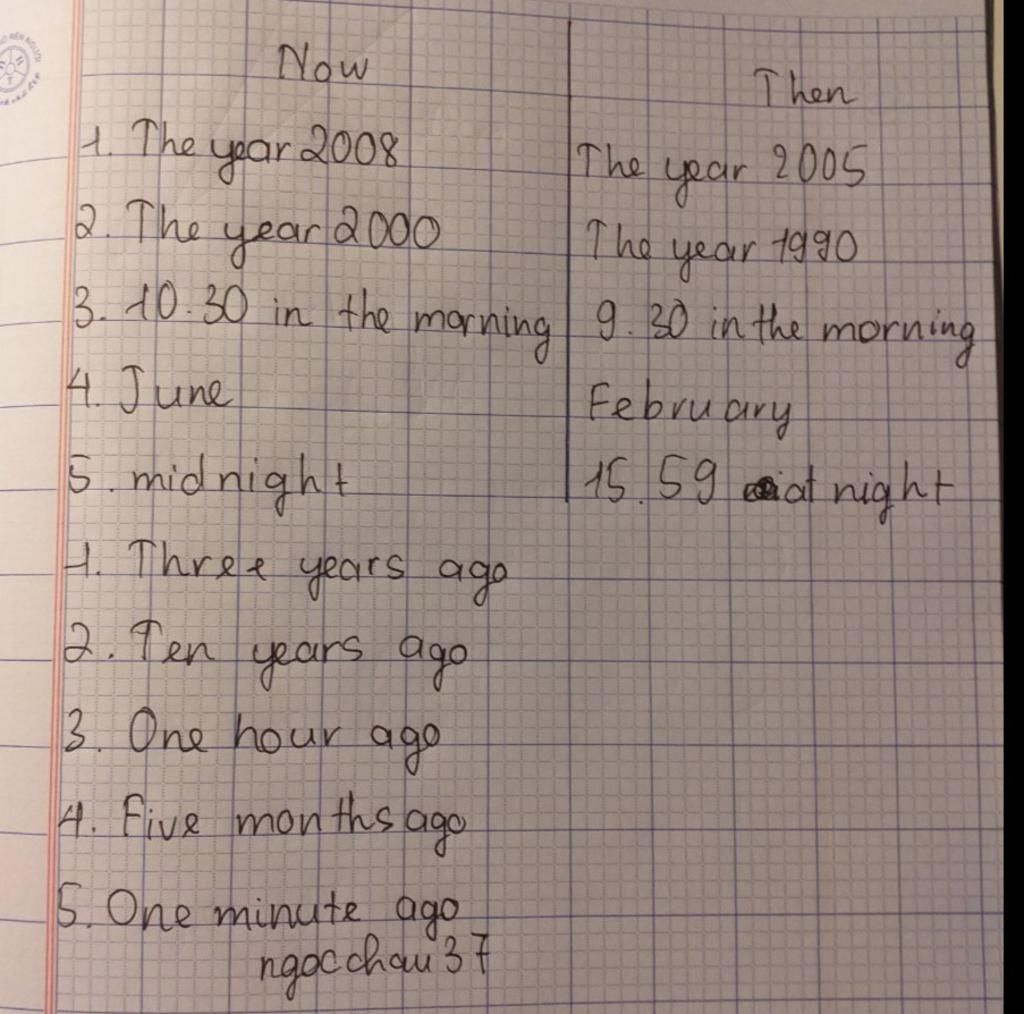 Now Then
1. The year 2008 The year 2005
2. The year 2000 The year 1990
3. 10.30 in the morning 9.30 in the morning
4. June February
5. midnight 15.59 at night
1. Three years ago
2. Ten years ago
3. One hour ago
4. Five months ago
5. One minute ago
ngocchau37